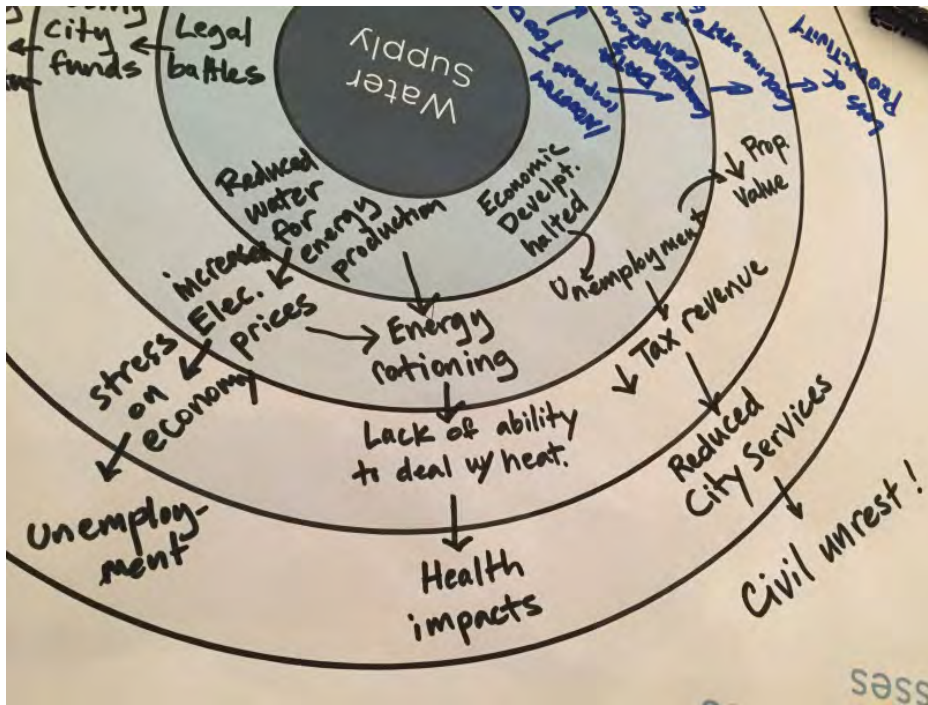 City
funds
Legal
battles
Water
Supply
Reduced
water
for
energy
production
Economic
Develpt.
halted
Prop.
Value
Unemployment
increased
Elec.
prices
Energy
rationing
Tax revenue
stress
on
economy
Lack of ability
to deal w/ heat.
Reduced
City Services
Unemploy-
ment
Health
impacts
Civil unrest!
Loss of
PRODUCTIVITY
sses